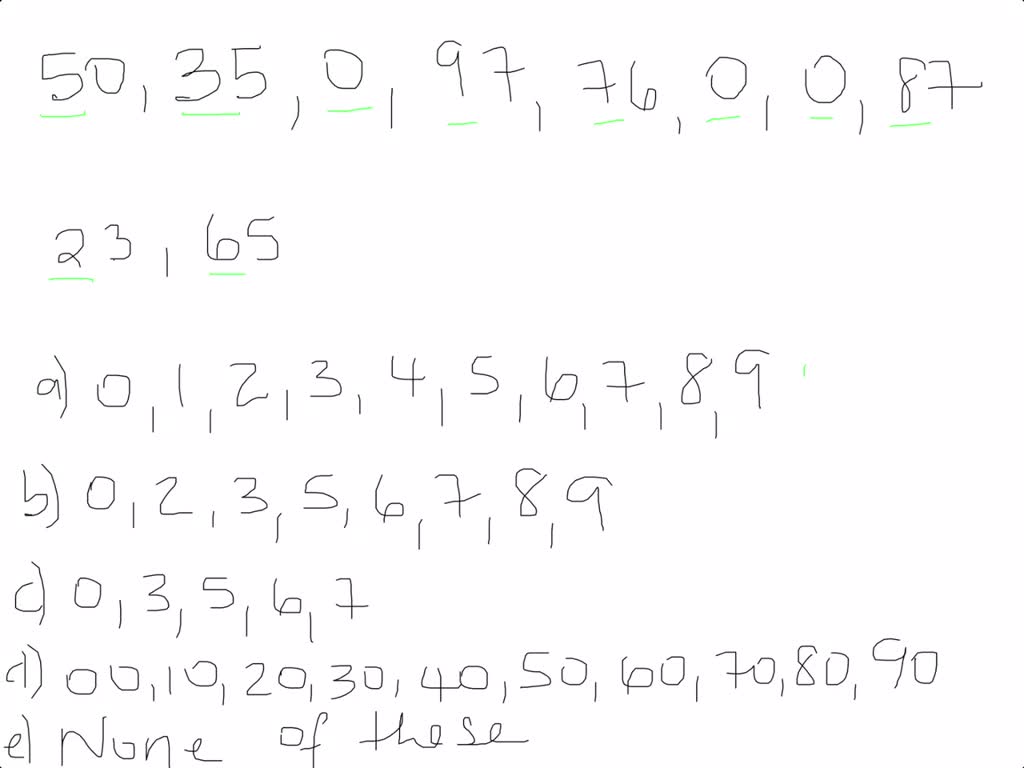 50, 35, 0, 97, 76, 0, 0, 87
23, 65
a) 0, 1, 2, 3, 4, 5, 6, 7, 8, 9
b) 0, 2, 3, 5, 6, 7, 8, 9
c) 0, 3, 5, 6, 7
d) 00, 10, 20, 30, 40, 50, 60, 70, 80, 90
e) None of these